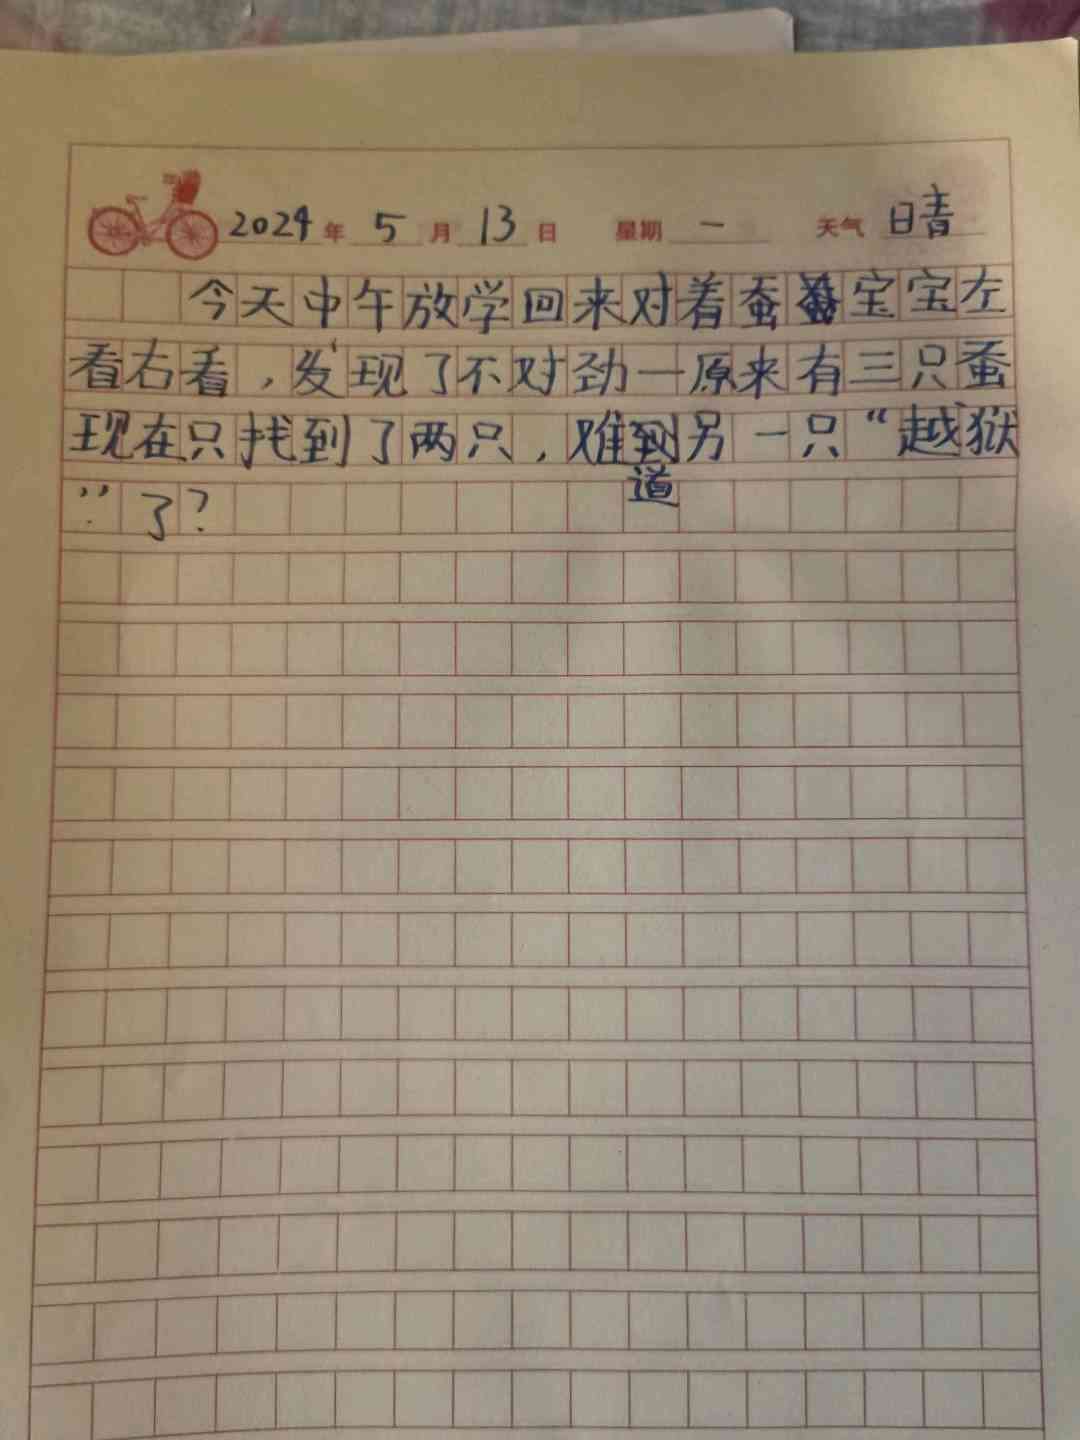 2024年5月13日 星期一 天气晴
今天中午放学回来对着蚕宝宝左
看右看，发现了不对劲一原来有三只蚕
现在只找到了两只，难道另一只“越狱
”了？